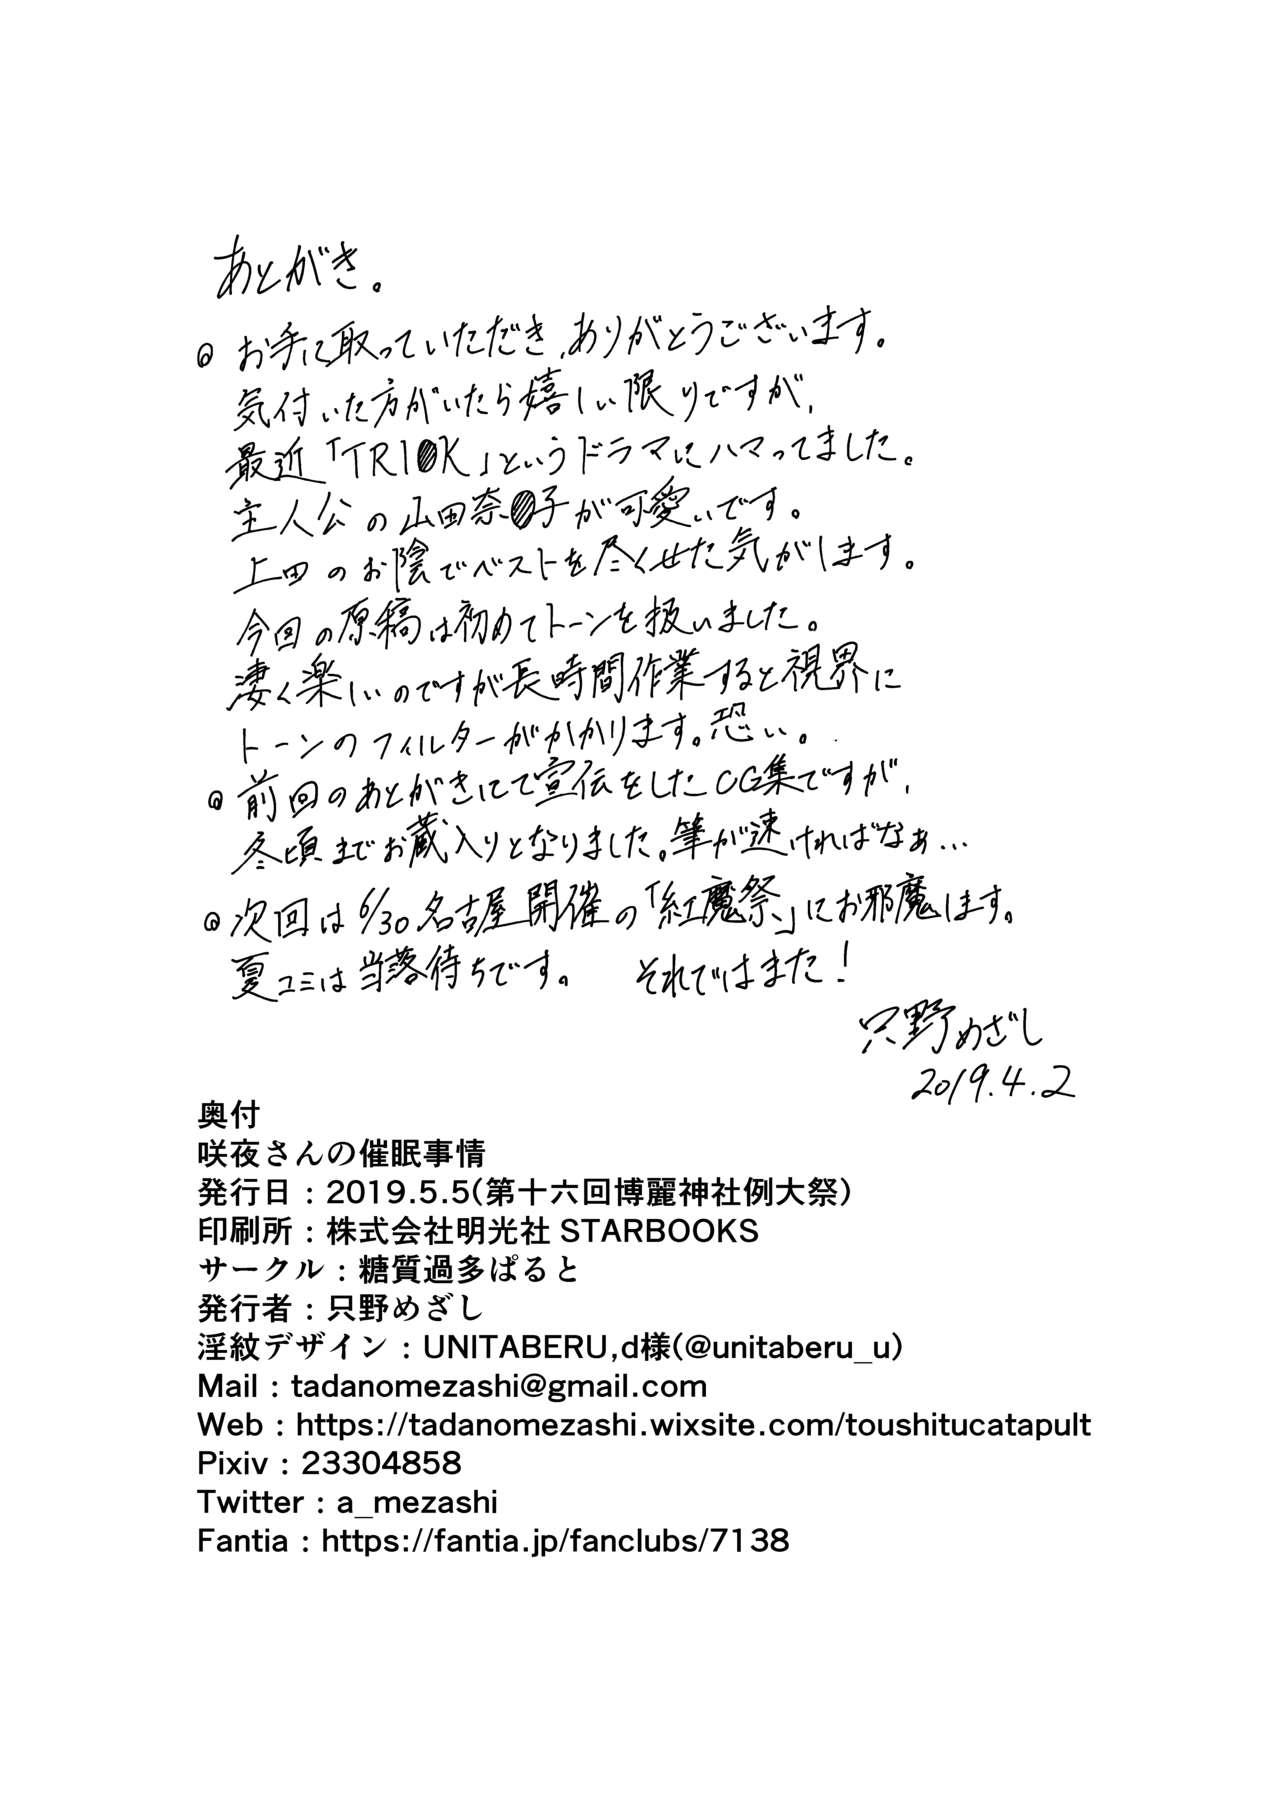 あとがき。
◎ お手に取っていただき、ありがとうございます。
気付いた方がいたら嬉しい限りですが、
最近「TRI●K」というドラマにハマってました。
主人公の山田奈●子が可愛いです。
上田のお陰でベストを尽くせた気がします。
今回の原稿は初めてトーンを扱いました。
凄く楽しいのですが長時間作業すると視界に
トーンのフィルターがかかります。恐い。
◎ 前回のあとがきにて宣伝をしたCG集ですが、
冬頃までお蔵入りとなりました。筆が速ければなぁ…
◎ 次回は6/30名古屋開催の「紅魔祭」にお邪魔します。
夏コミは当落待ちです。 それではまた!
只野めざし
2019.4.2
奥付
咲夜さんの催眠事情
発行日:2019.5.5(第十六回博麗神社例大祭)
印刷所:株式会社明光社 STARBOOKS
サークル:糖質過多ぱると
発行者:只野めざし
淫紋デザイン:UNITABERU,d様(@unitaberu_u)
Mail : tadanomezashi@gmail.com
Web : https://tadanomezashi.wixsite.com/toushitucatapult
Pixiv : 23304858
Twitter : a_mezashi
Fantia : https://fantia.jp/fanclubs/7138